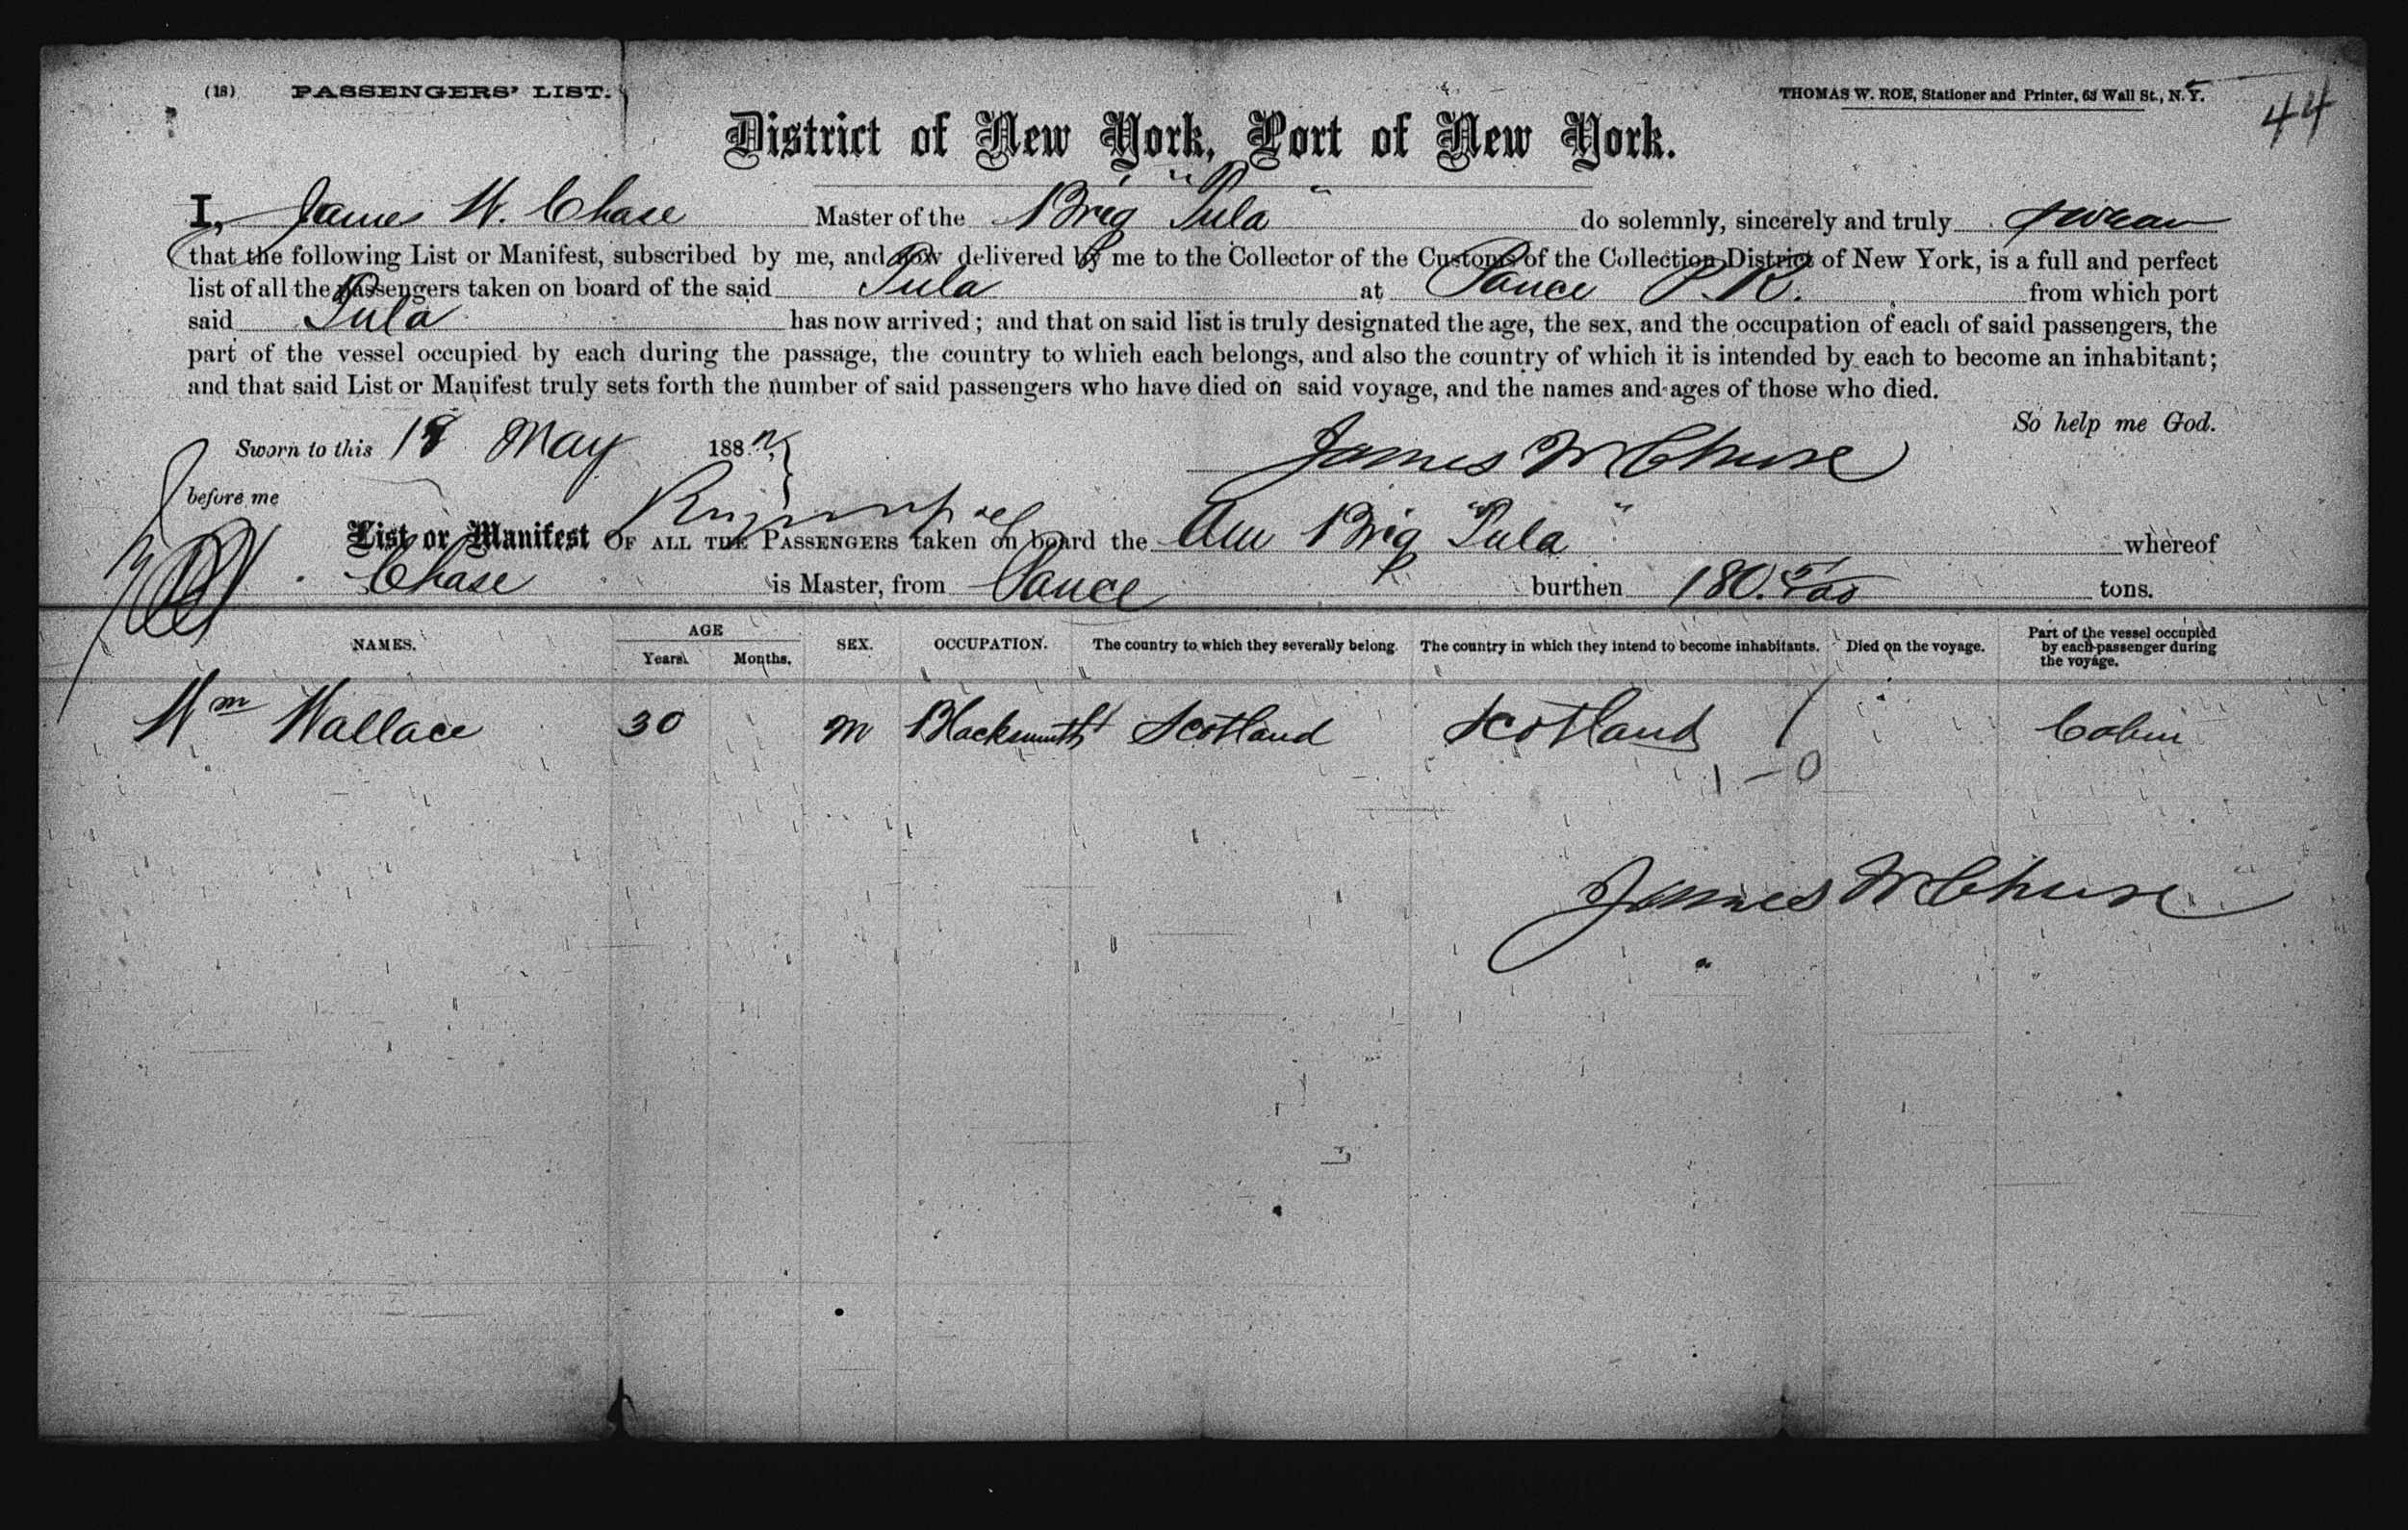 (18) PASSENGERS' LIST.
THOMAS W. ROE, Stationer and Printer, 63 Wall St., N. Y.
44
District of New York, Port of New York.
I, James W. Chase Master of the Brig "Pula" do solemnly, sincerely and truly swear
that the following List or Manifest, subscribed by me, and now delivered by me to the Collector of the Customs of the Collection District of New York, is a full and perfect
list of all the passengers taken on board of the said Pula at Ponce P.R. from which port
said Pula has now arrived; and that on said list is truly designated the age, the sex, and the occupation of each of said passengers, the
part of the vessel occupied by each during the passage, the country to which each belongs, and also the country of which it is intended by each to become an inhabitant;
and that said List or Manifest truly sets forth the number of said passengers who have died on said voyage, and the names and ages of those who died.
So help me God.
Sworn to this 18 May 188
James W Chase
before me
List or Manifest OF ALL THE PASSENGERS taken on board the Am Brig "Pula" whereof
Chase is Master, from Ponce burthen 180. tons.
NAMES. AGE Years. Months. SEX. OCCUPATION. The country to which they severally belong. The country in which they intend to become inhabitants. Died on the voyage. Part of the vessel occupied by each passenger during the voyage.
Wm Wallace 30 m Blacksmith Scotland Scotland / Cabin
1 - 0
James W Chase